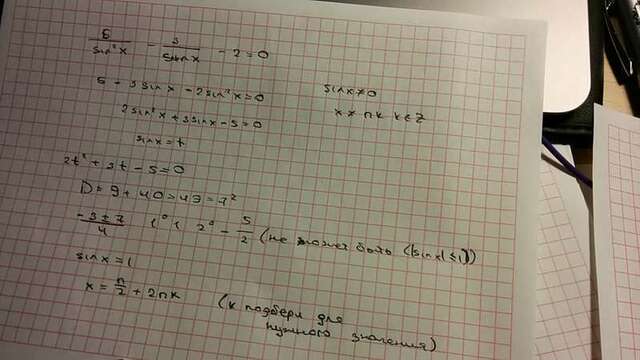 5/sin²x - 3/sinx - 2 = 0
5 - 3sinx - 2sin²x = 0
sinx ≠ 0
2sin²x + 3sinx - 5 = 0
x ≠ πk k∈Z
sinx = t
2t² + 3t - 5 = 0
D = 9 + 40 = 49 = 7²
(-3 ± 7)/4 1° 1 2° -5/2 (не может быть (|sinx| ≤ 1))
sinx = 1
x = π/2 + 2πk (k подбери для
нужного значения)